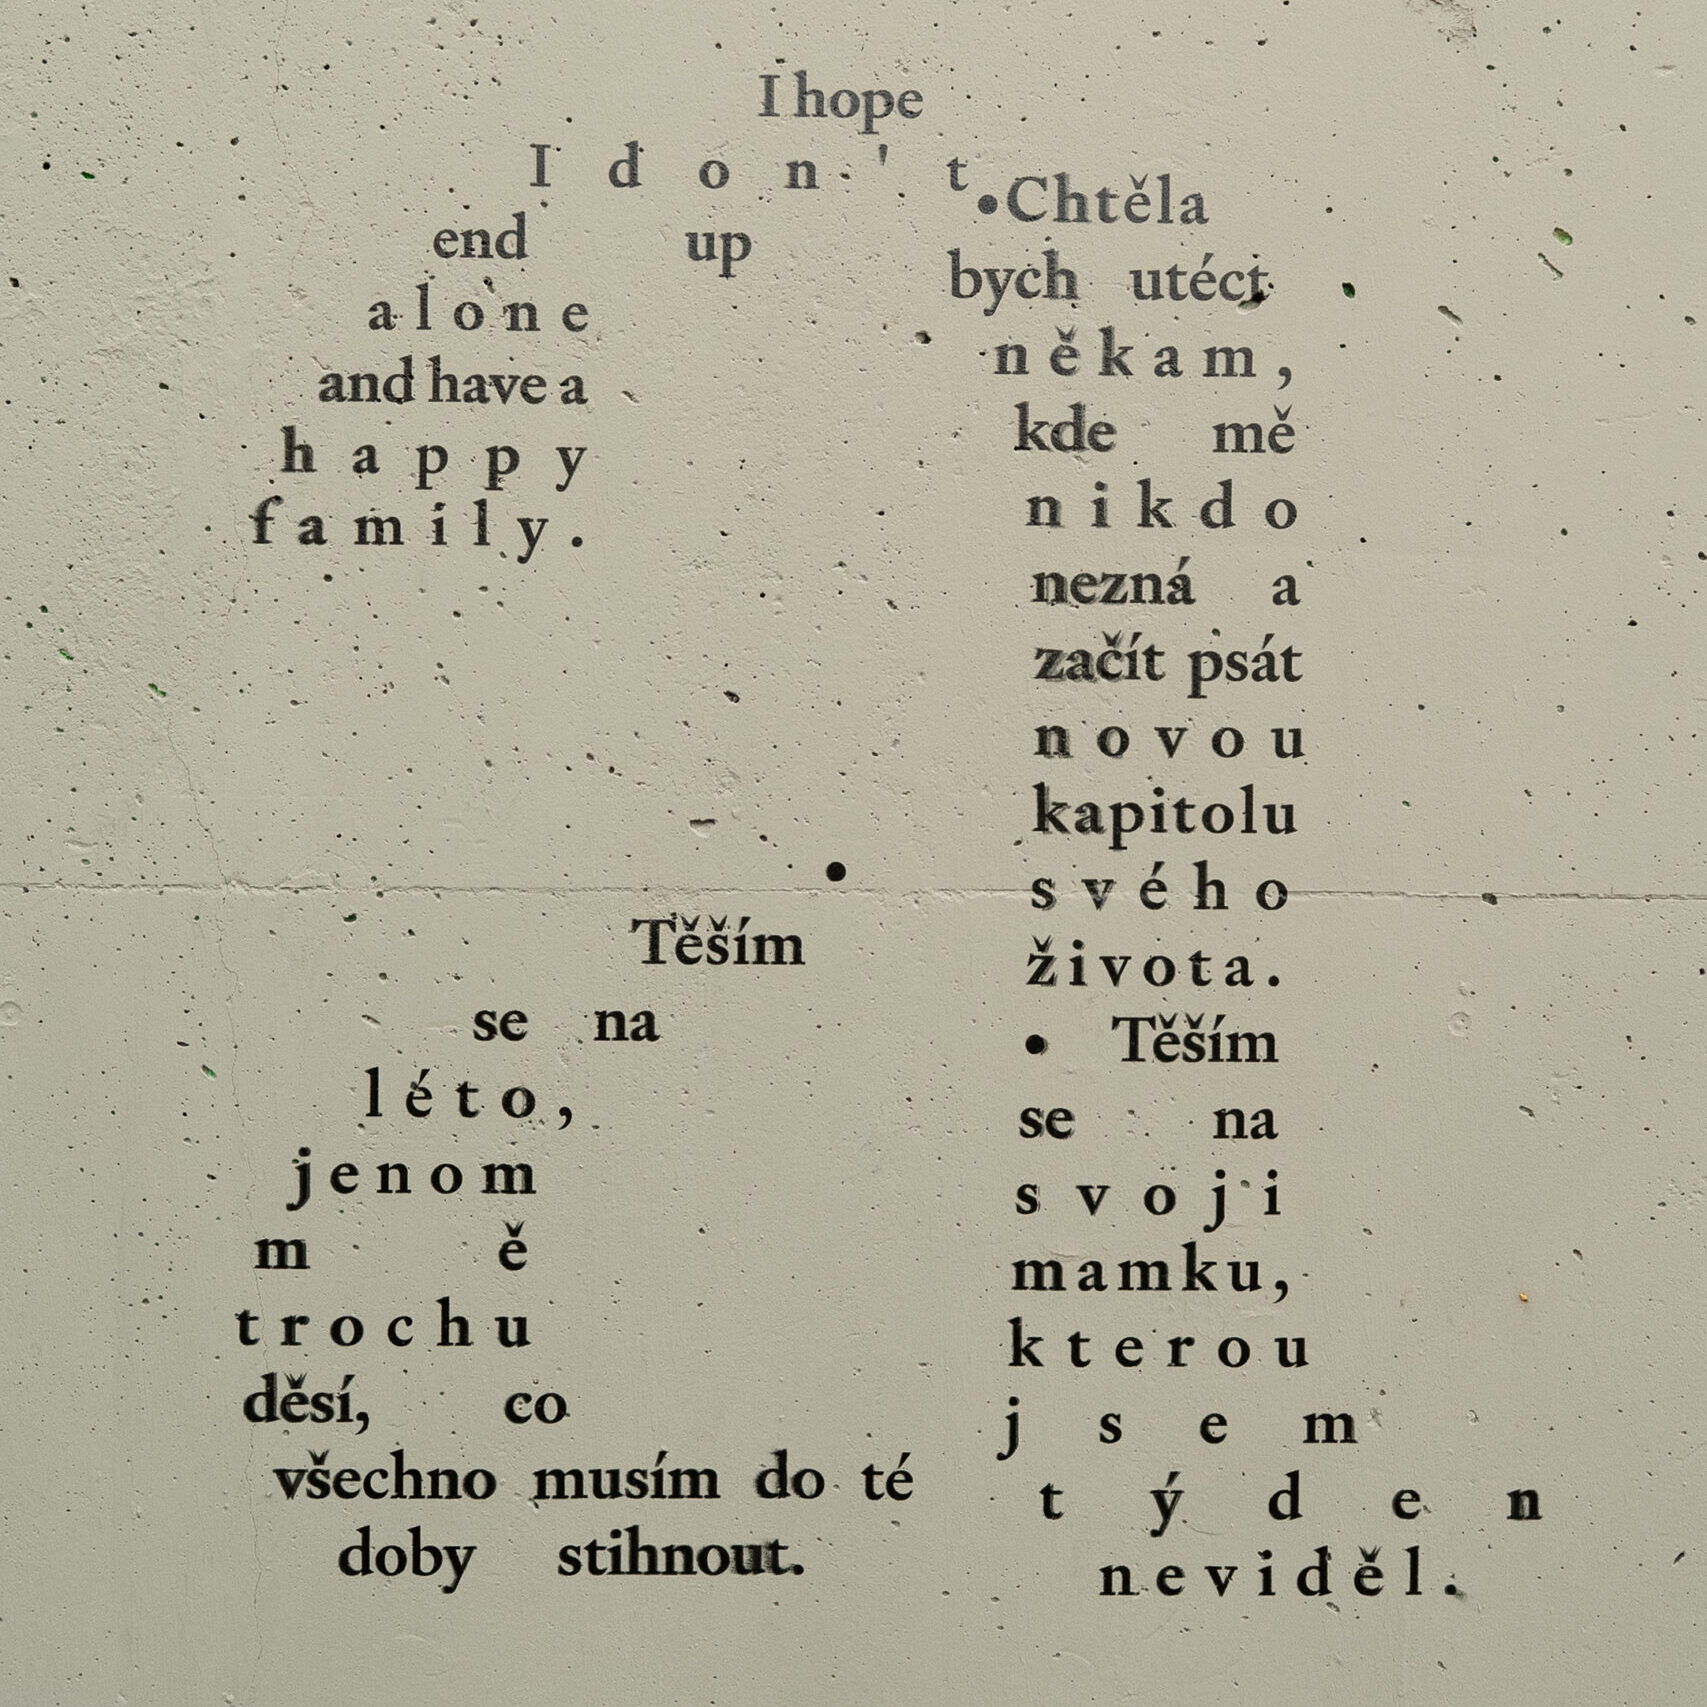 I hope
I don't
end up
alone
and have a
happy
family.
•Chtěla
bych utéct
někam,
kde mě
nikdo
nezná a
začít psát
novou
kapitolu
svého
života.
•
Těším
se na
léto,
jenom
mě
trochu
děsí, co
všechno musím do té
doby stihnout.
• Těším
se na
svoji
mamku,
kterou
jsem
týden
neviděl.